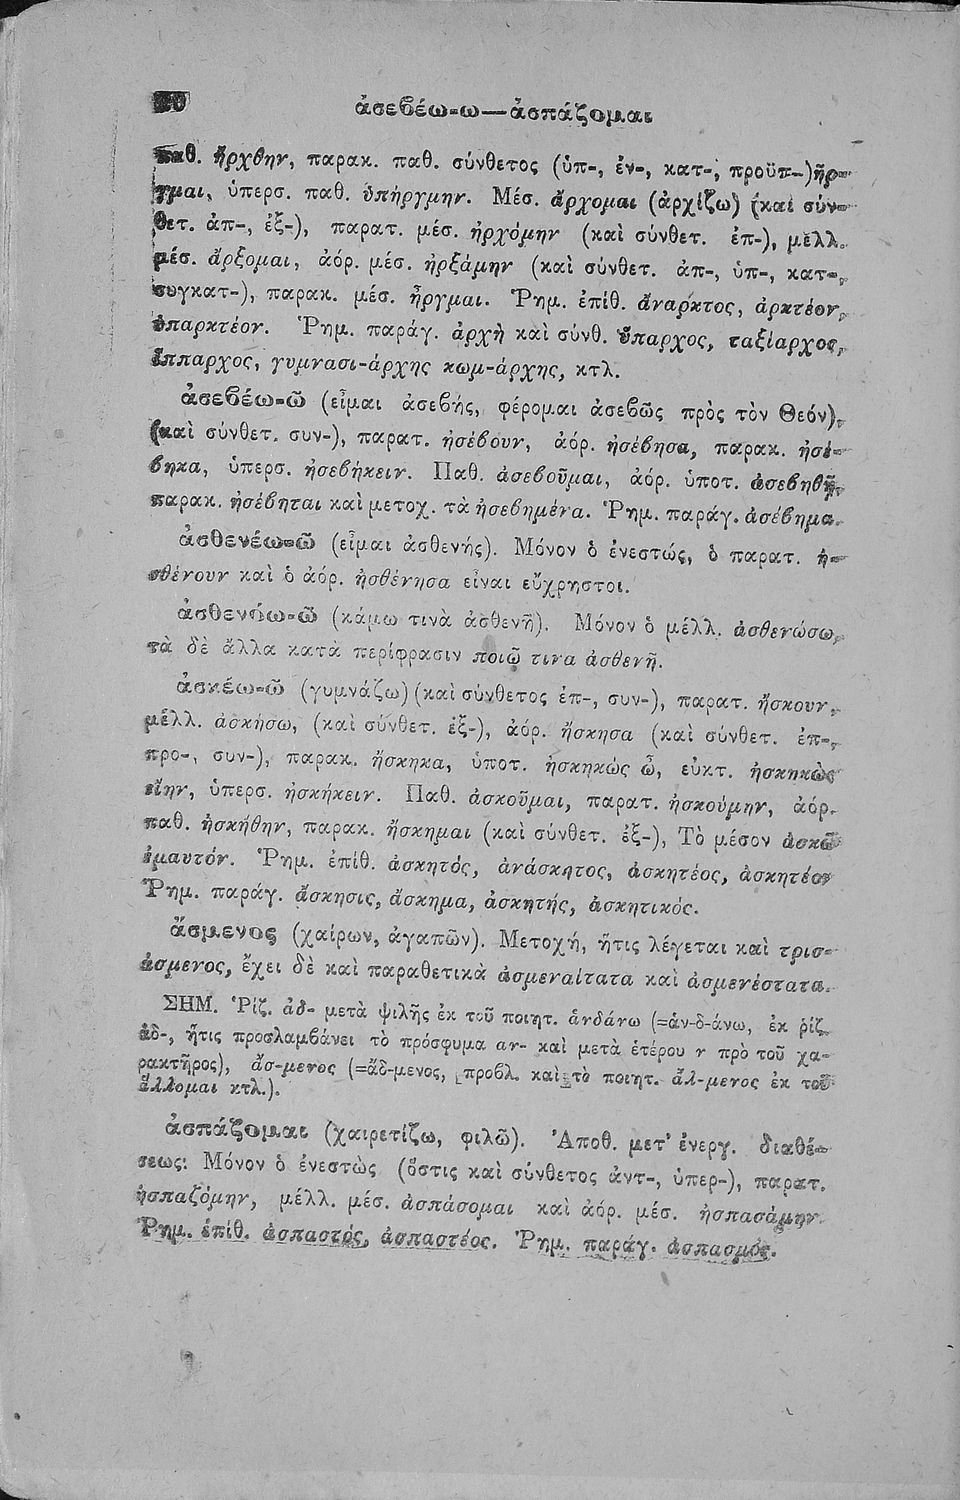 ἀσεβέω-ω—ἀσπάζομαι
παθ. ἤρχθην, παρακ. παθ. σύνθετος (ὑπ-, ἐν-, κατ-, προϋπ-) ἦρ-
γμαι, ὑπερσ. παθ. ὑπήργμην. Μέσ. ἄρχομαι (ἀρχίζω) (καὶ σύν-
θετ. ἀπ-, ἐξ-), παρατ. μέσ. ἠρχόμην (καὶ σύνθετ. ἐπ-), μέλλ.
μέσ. ἄρξομαι, ἀόρ. μέσ. ἠρξάμην (καὶ σύνθετ. ἀπ-, ὑπ-, κατ-,
συγκατ-), παρακ. μέσ. ἦργμαι. Ῥημ. ἐπίθ. ἄναρκτος, ἀρκτέον,
ὑπαρκτέον. Ῥημ. παράγ. ἀρχὴ καὶ σύνθ. ὕπαρχος, ταξίαρχος,
ἵππαρχος, γυμνασι-άρχης κωμ-άρχης, κτλ.
ἀσεβέω-ῶ (εἶμαι ἀσεβής, φέρομαι ἀσεβῶς πρὸς τὸν Θεόν),
(καὶ σύνθετ. συν-), παρατ. ἠσέβουν, ἀόρ. ἠσέβησα, παρακ. ἠσέ-
βηκα, ὑπερσ. ἠσεβήκειν. Παθ. ἀσεβοῦμαι, ἀόρ. ὑποτ. ἀσεβηθῇ,
παρακ. ἠσέβηται καὶ μετοχ. τὰ ἠσεβημένα. Ῥημ. παράγ. ἀσέβημα.
ἀσθενέω-ῶ (εἶμαι ἀσθενής). Μόνον ὁ ἐνεστώς, ὁ παρατ. ἠ-
σθένουν καὶ ὁ ἀόρ. ἠσθένησα εἶναι εὔχρηστοι.
ἀσθενόω-ῶ (κάμω τινὰ ἀσθενῆ). Μόνον ὁ μέλλ. ἀσθενώσω,
τὰ δὲ ἄλλα κατὰ περίφρασιν ποιῶ τινα ἀσθενῆ.
ἀσκέω-ῶ (γυμνάζω) (καὶ σύνθετος ἐπ-, συν-), παρατ. ἤσκουν,
μέλλ. ἀσκήσω, (καὶ σύνθετ. ἐξ-), ἀόρ. ἤσκησα (καὶ σύνθετ. ἐπ-,
προ-, συν-), παρακ. ἤσκηκα, ὑποτ. ἠσκηκὼς ὦ, εὐκτ. ἠσκηκὼς
εἴην, ὑπερσ. ἠσκήκειν. Παθ. ἀσκοῦμαι, παρατ. ἠσκούμην, ἀόρ.
παθ. ἠσκήθην, παρακ. ἤσκημαι (καὶ σύνθετ. ἐξ-), Τὸ μέσον ἀσκῶ
ἐμαυτόν. Ῥημ. ἐπίθ. ἀσκητός, ἀνάσκητος, ἀσκητέος, ἀσκητέον
Ῥημ. παράγ. ἄσκησις, ἄσκημα, ἀσκητής, ἀσκητικός.
ἄσμενος (χαίρων, ἀγαπῶν). Μετοχή, ἥτις λέγεται καὶ τρισ-
άσμενος, ἔχει δὲ καὶ παραθετικὰ ἀσμεναίτατα καὶ ἀσμενέστατα.
ΣΗΜ. Ῥίζ. ἀδ- μετὰ ψιλῆς ἐκ τοῦ ποιητ. ἁνδάνω (=ἁν-δ-άνω, ἐκ ῥίζ.
ἀδ-, ἥτις προσλαμβάνει τὸ πρόσφυμα αν- καὶ μετὰ ἑτέρου ν πρὸ τοῦ χα-
ρακτῆρος), ἄσ-μενος (=ἄδ-μενος, προβλ. καὶ τὸ ποιητ. ἄλ-μενος ἐκ τοῦ
ἅλλομαι κτλ.).
ἀσπάζομαι (χαιρετίζω, φιλῶ). Ἀποθ. μετ᾽ ἐνεργ. διαθέ-
σεως: Μόνον ὁ ἐνεστὼς (ὅστις καὶ σύνθετος ἀντ-, ὑπερ-), παρατ.
ἠσπαζόμην, μέλλ. μέσ. ἀσπάσομαι καὶ ἀόρ. μέσ. ἠσπασάμην.
Ῥημ. ἐπίθ. ἀσπαστός, ἀσπαστέος. Ῥημ. παράγ. ἀσπασμός.